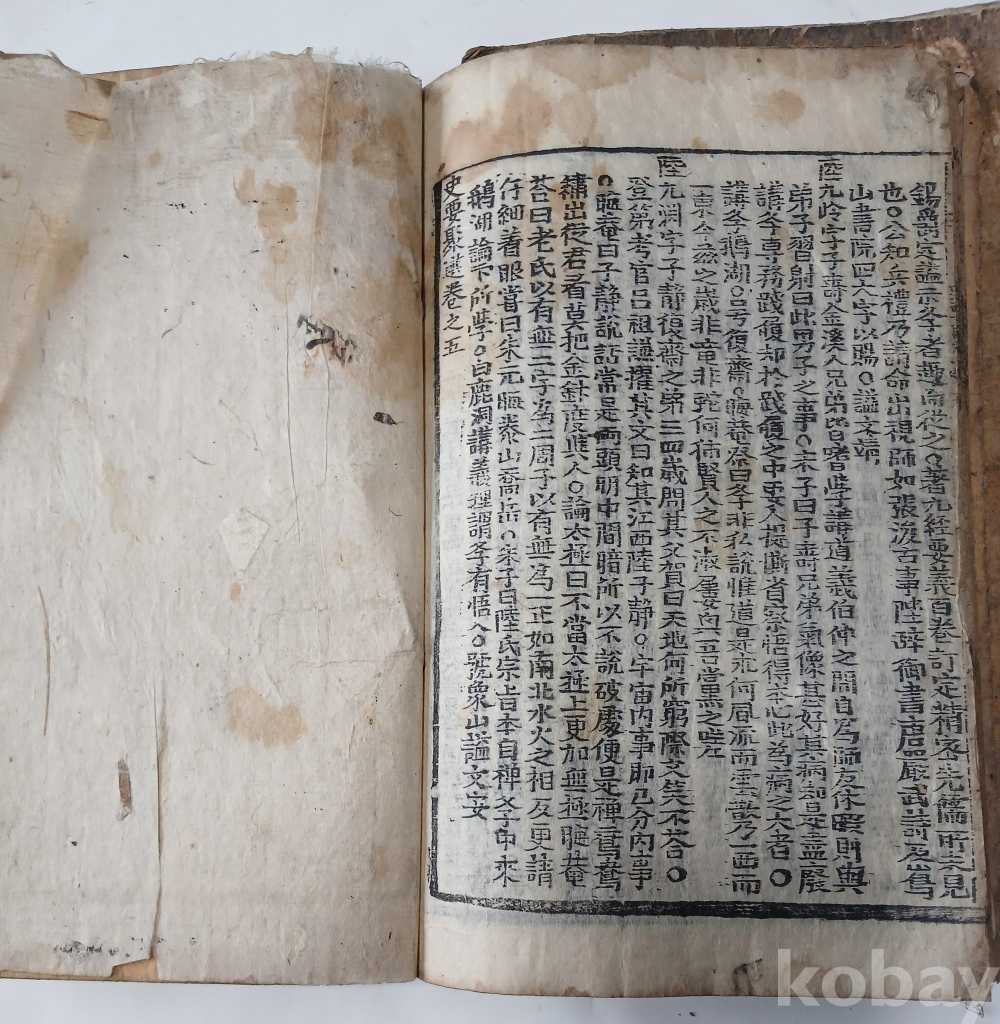 錫爵定諡示冬者趨向從之〇著九經要義百卷訂定精密先儒所未見
也〇公知兵禮乃請命出視師如張浚古事陛辞御書唐嚴武詩及鶴
山書院四大字以賜〇諡文靖
陸九齡字子壽金溪人兄弟皆嗜學講道義伯仲之間自為師友休暇則與
弟子習射曰此男子之事〇朱子曰子壽兄弟氣像甚好其病却是盡廢
講孝專務踐履却於踐履之中要人提撕省察悟得本心此為病之大者〇
講孝鵝湖〇号復齋〇晦菴祭曰孝非私說惟道是求
陸九淵字子靜復齋之弟三四歲問其父賀曰天地何所窮際父笑不荅〇
登第考官呂祖謙擢其文曰知其江西陸子靜〇宇宙内事即己分内事
〇晦庵曰子靜說話常是兩頭明中間暗所以不說破處便是禪鴛鴦
繡出從君看莫把金針度與人〇論太極曰不當太極上更加無極晦菴
荅曰老氏以有無二字為二周子以有無為一正如南北水火之相反更請
仔細着眼嘗曰朱元晦泰山喬岳〇朱子曰陸氏宗旨本自禪孝中来
鵝湖論下所學〇白鹿洞講義理謂孝有悟入〇號象山諡文安
史要聚選卷之五
kobay